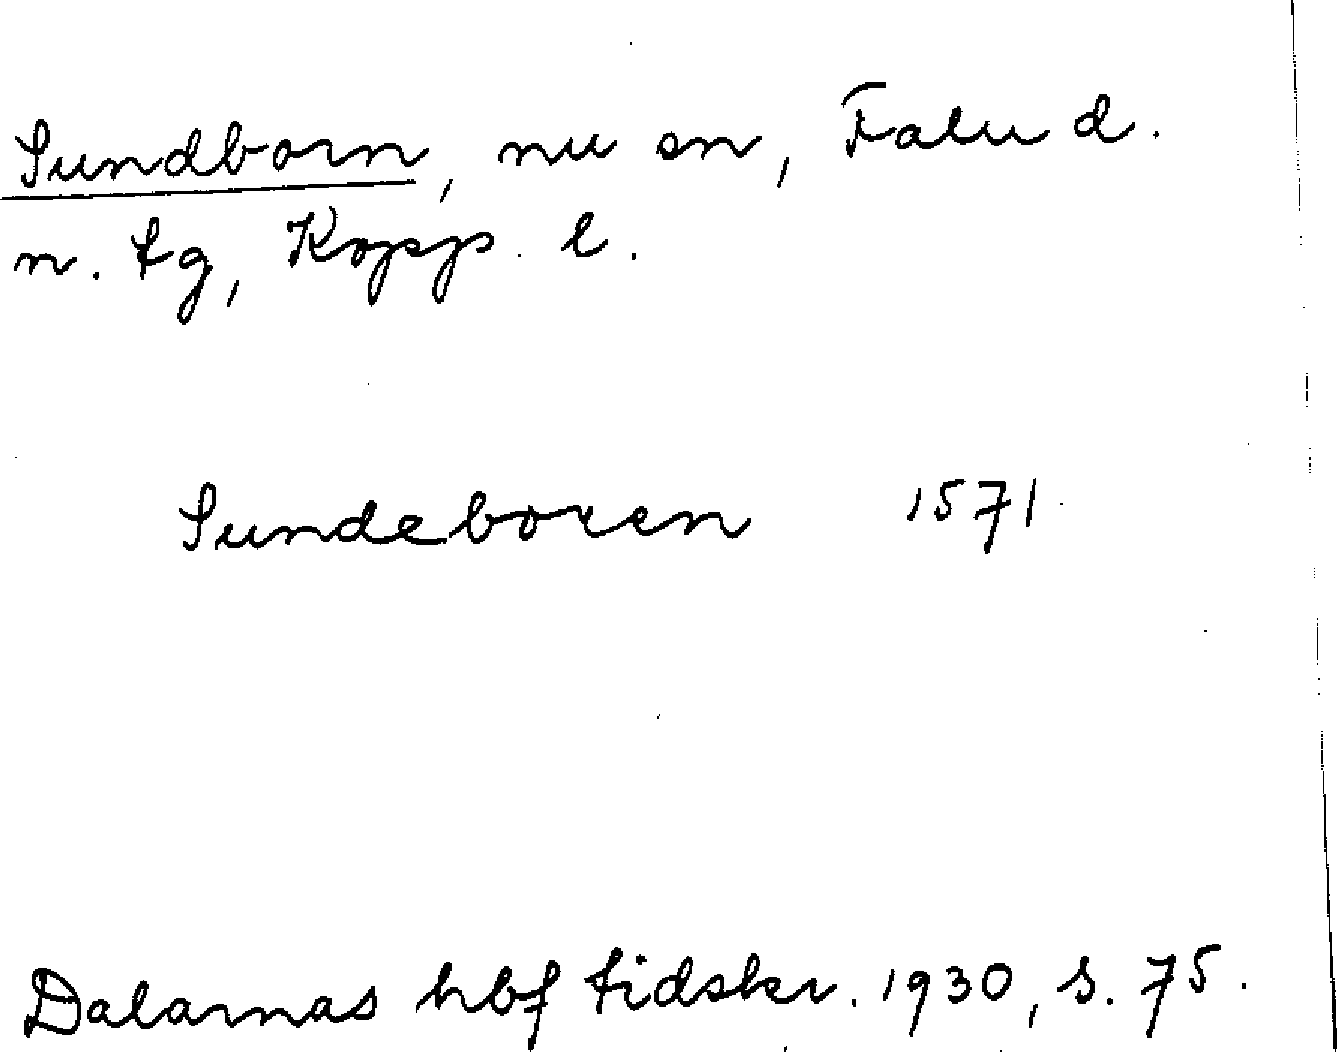 Sundborn, nu sn, Falu d.
n. tg, Kopp. l.
Sundeboren 1571.
Dalarnas hbf tidskr. 1930, s. 75.